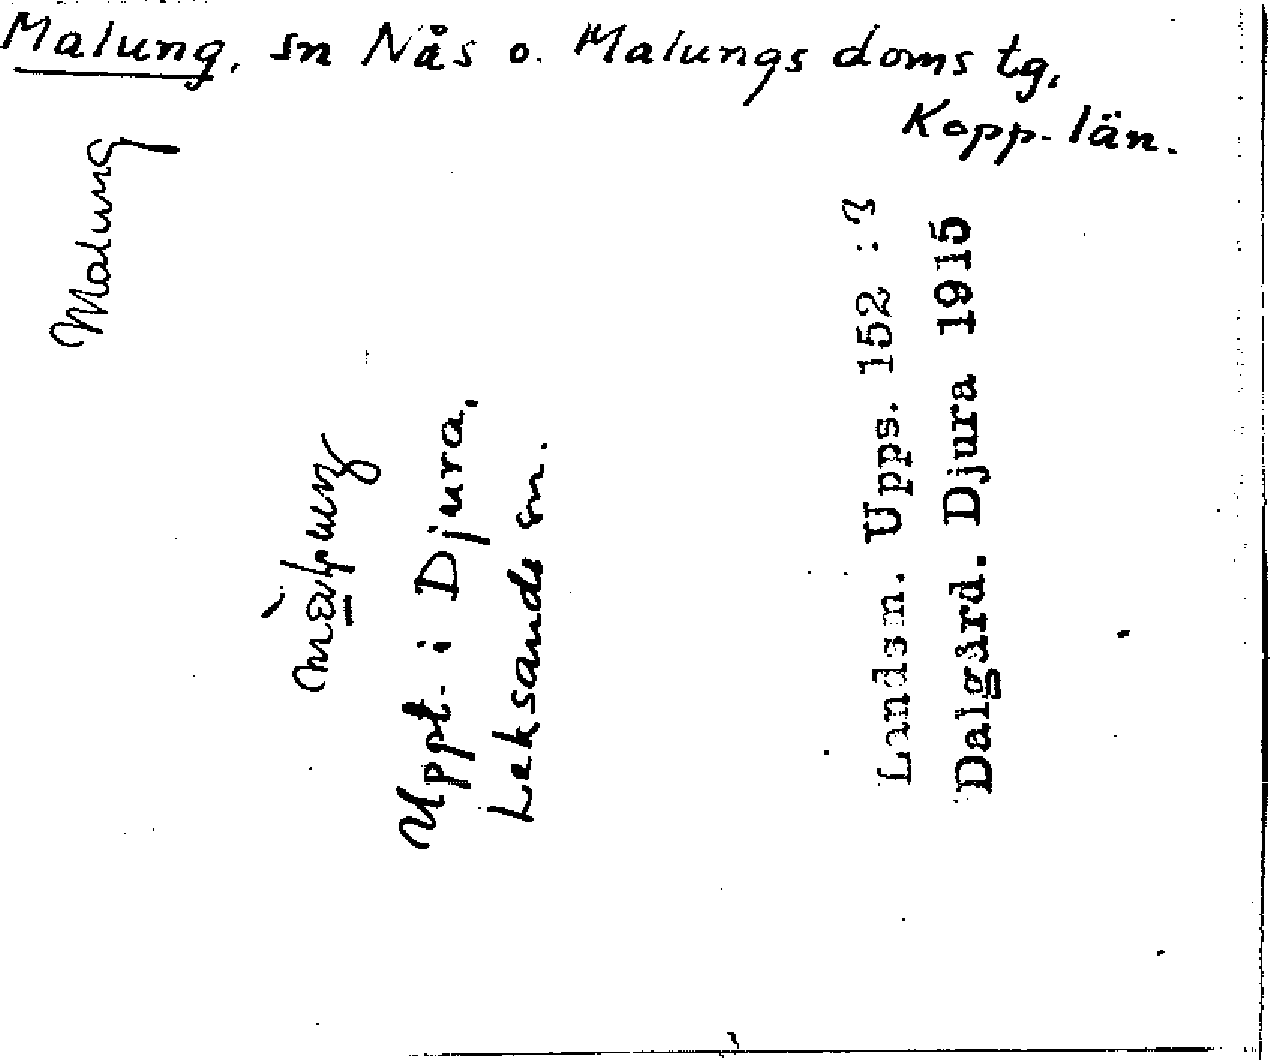 Malung, sn Nås o. Malungs doms tg.
Kopp. län.
Malung
Uppt. i Djura,
Leksands sn.
Landsm. Upps. 152 : 3
Dalgård. Djura 1915